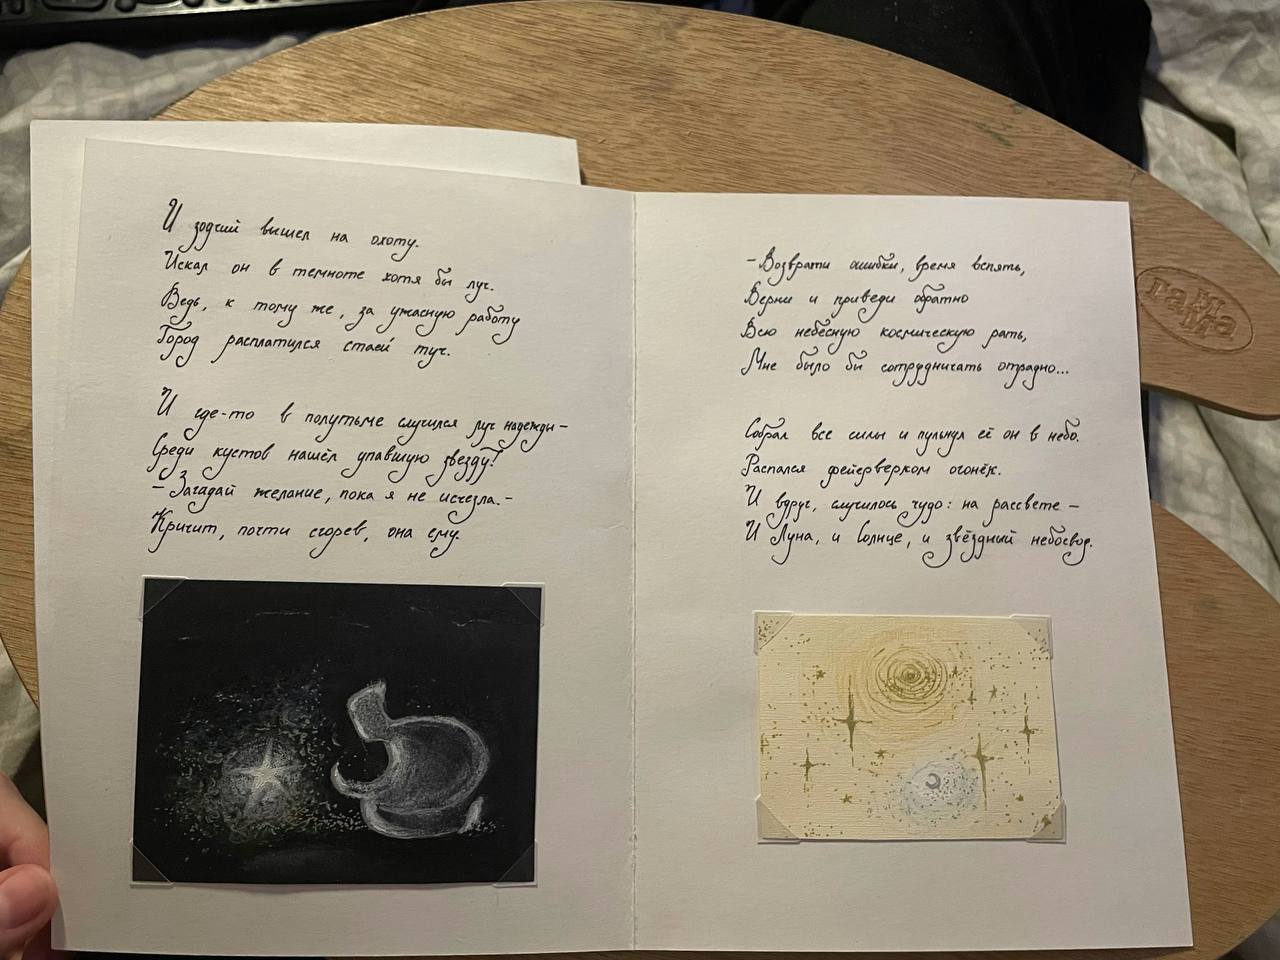 И зодчий вышел на охоту.
Искал он в темноте хотя бы луч.
Ведь, к тому же, за ужасную работу
Город расплатился стаей туч.
И где-то в полутьме случился луч надежды –
Среди кустов нашёл упавшую звезду!
– Загадай желание, пока я не исчезла. –
Кричит, почти сгорев, она ему.
– Возврати ошибки, время вспять,
Верни и приведи обратно
Всю небесную космическую рать,
Мне было бы сотрудничать отрадно...
Собрал все силы и пульнул её он в небо.
Распался фейерверком огонёк.
И вдруг, случилось чудо: на рассвете –
И Луна, и Солнце, и звёздный небосвод.
гамма